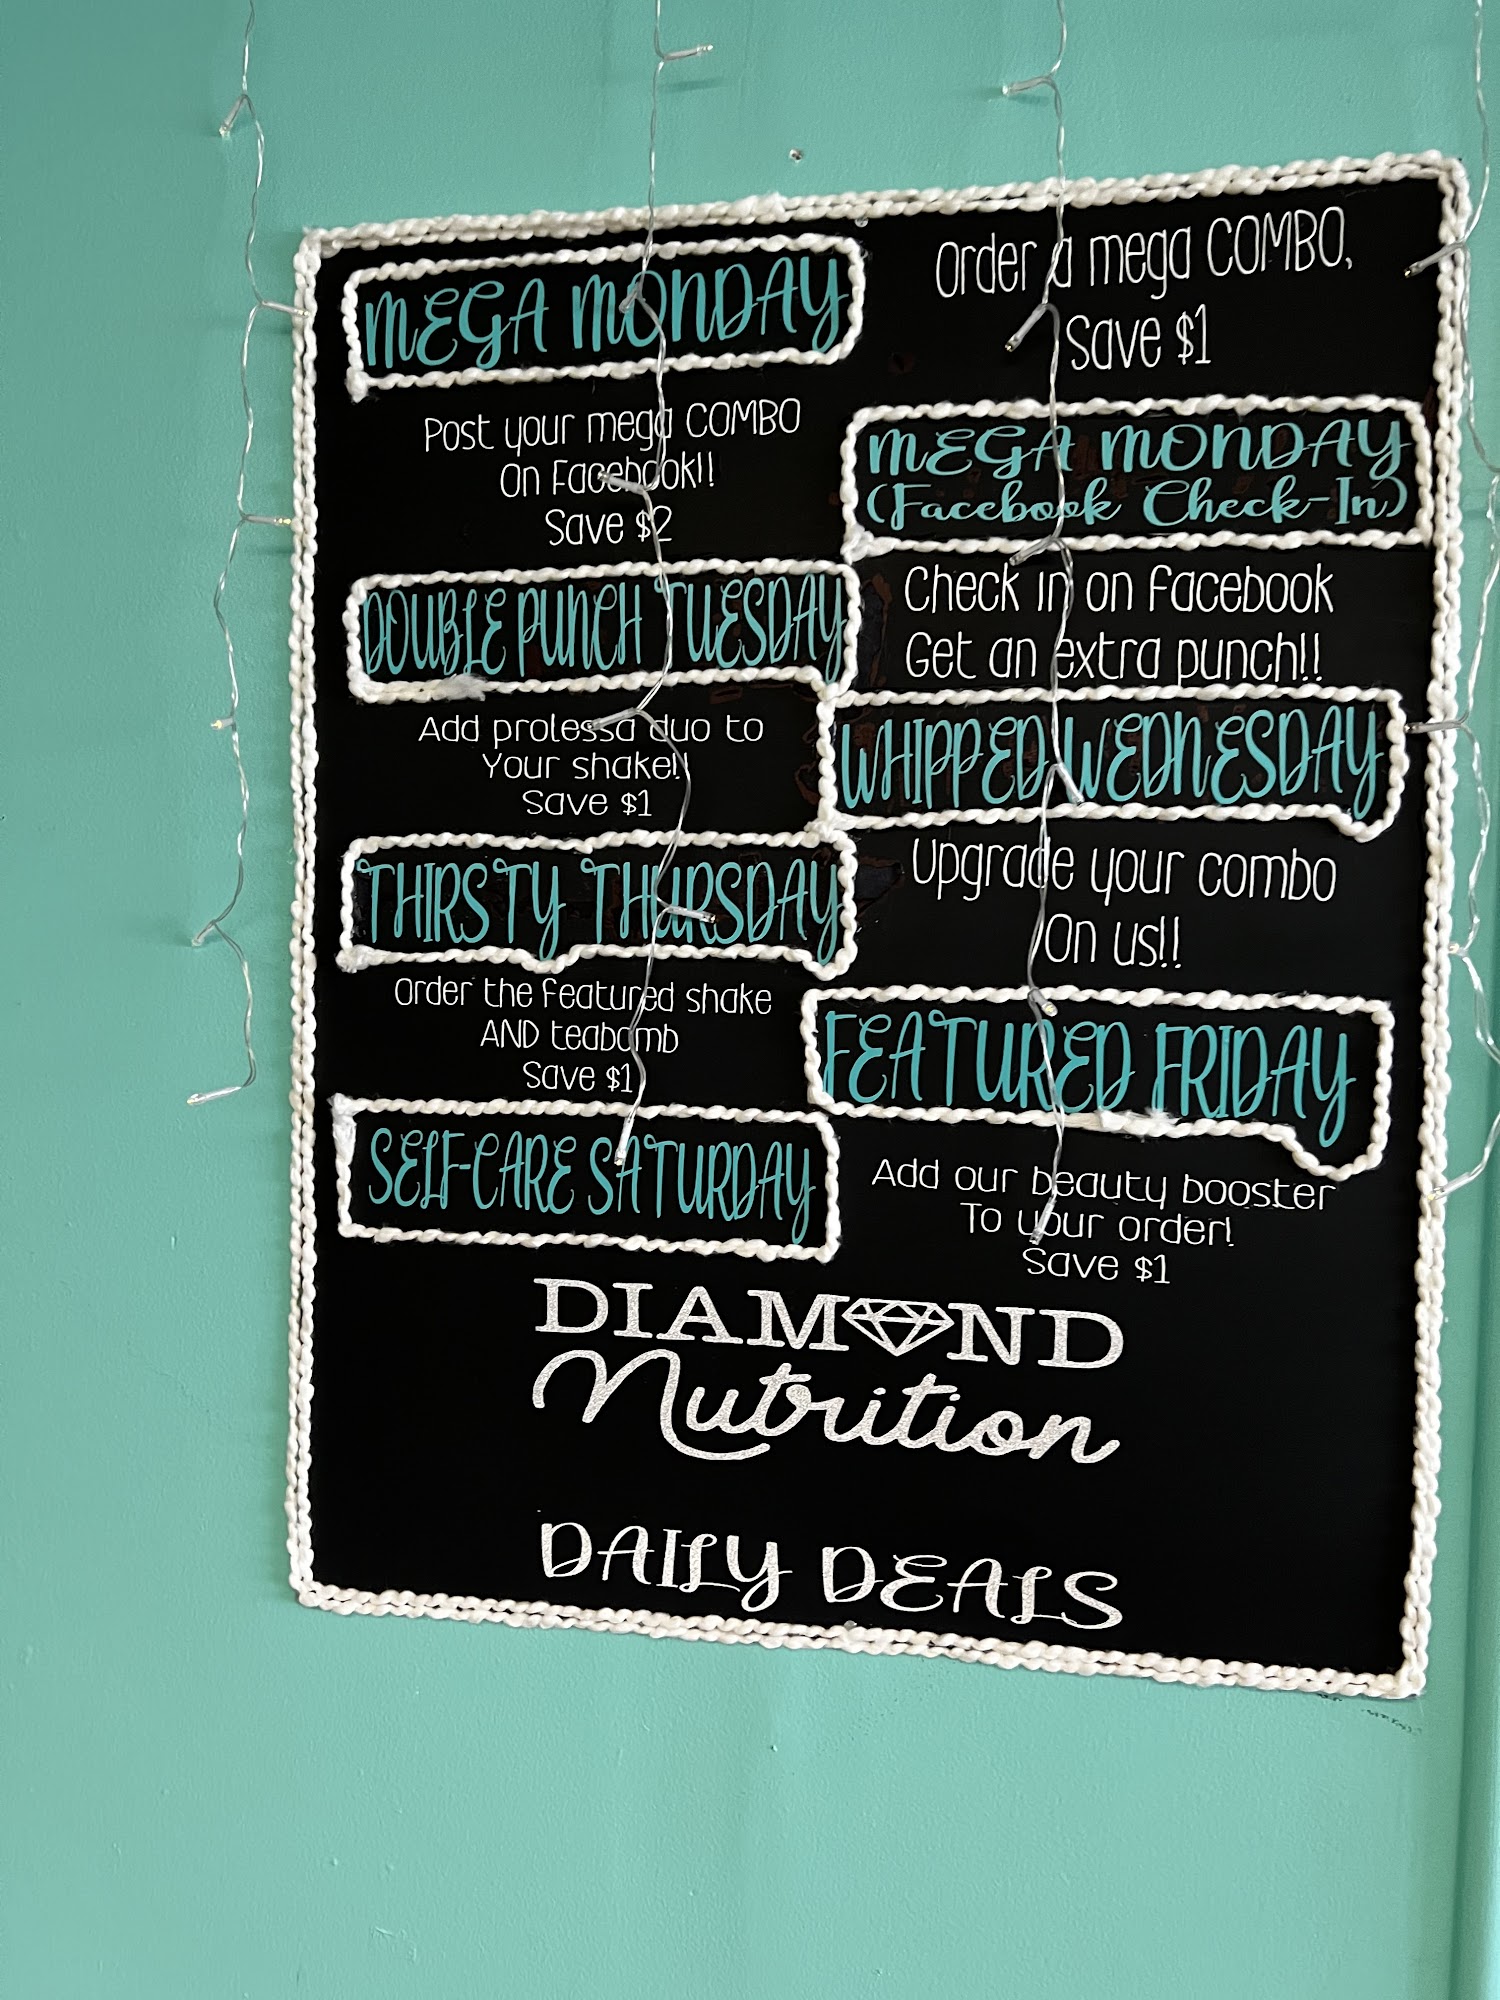 MEGA MONDAY
Order a mega COMBO,
Save $1
MEGA MONDAY
(Facebook Check-In)
Post your mega COMBO
On Facebook!!
Save $2
DOUBLE PUNCH TUESDAY
Check in on Facebook
Get an extra punch!!
WHIPPED WEDNESDAY
Add prolessa duo to
Your shake!!
Save $1
THIRSTY THURSDAY
Upgrade your combo
On us!!
FEATURED FRIDAY
Order the featured shake
AND teabomb
Save $1
SELF-CARE SATURDAY
Add our beauty booster
To your order!
Save $1
DIAMOND
Nutrition
DAILY DEALS